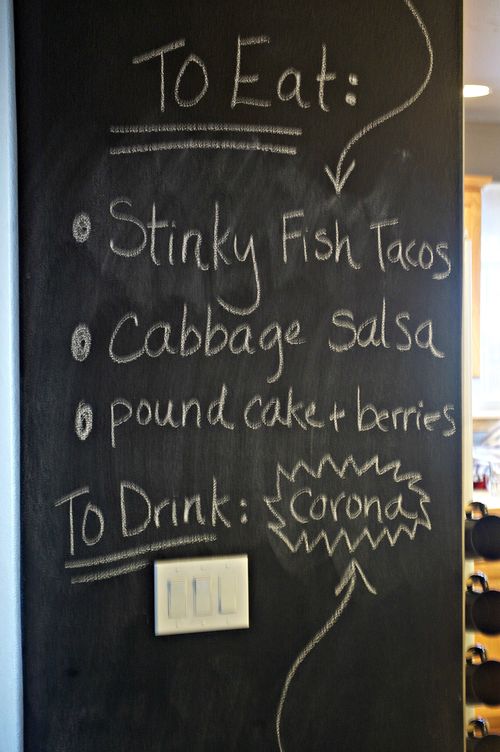 To Eat:
Stinky Fish Tacos
Cabbage Salsa
pound cake + berries
To Drink: Corona